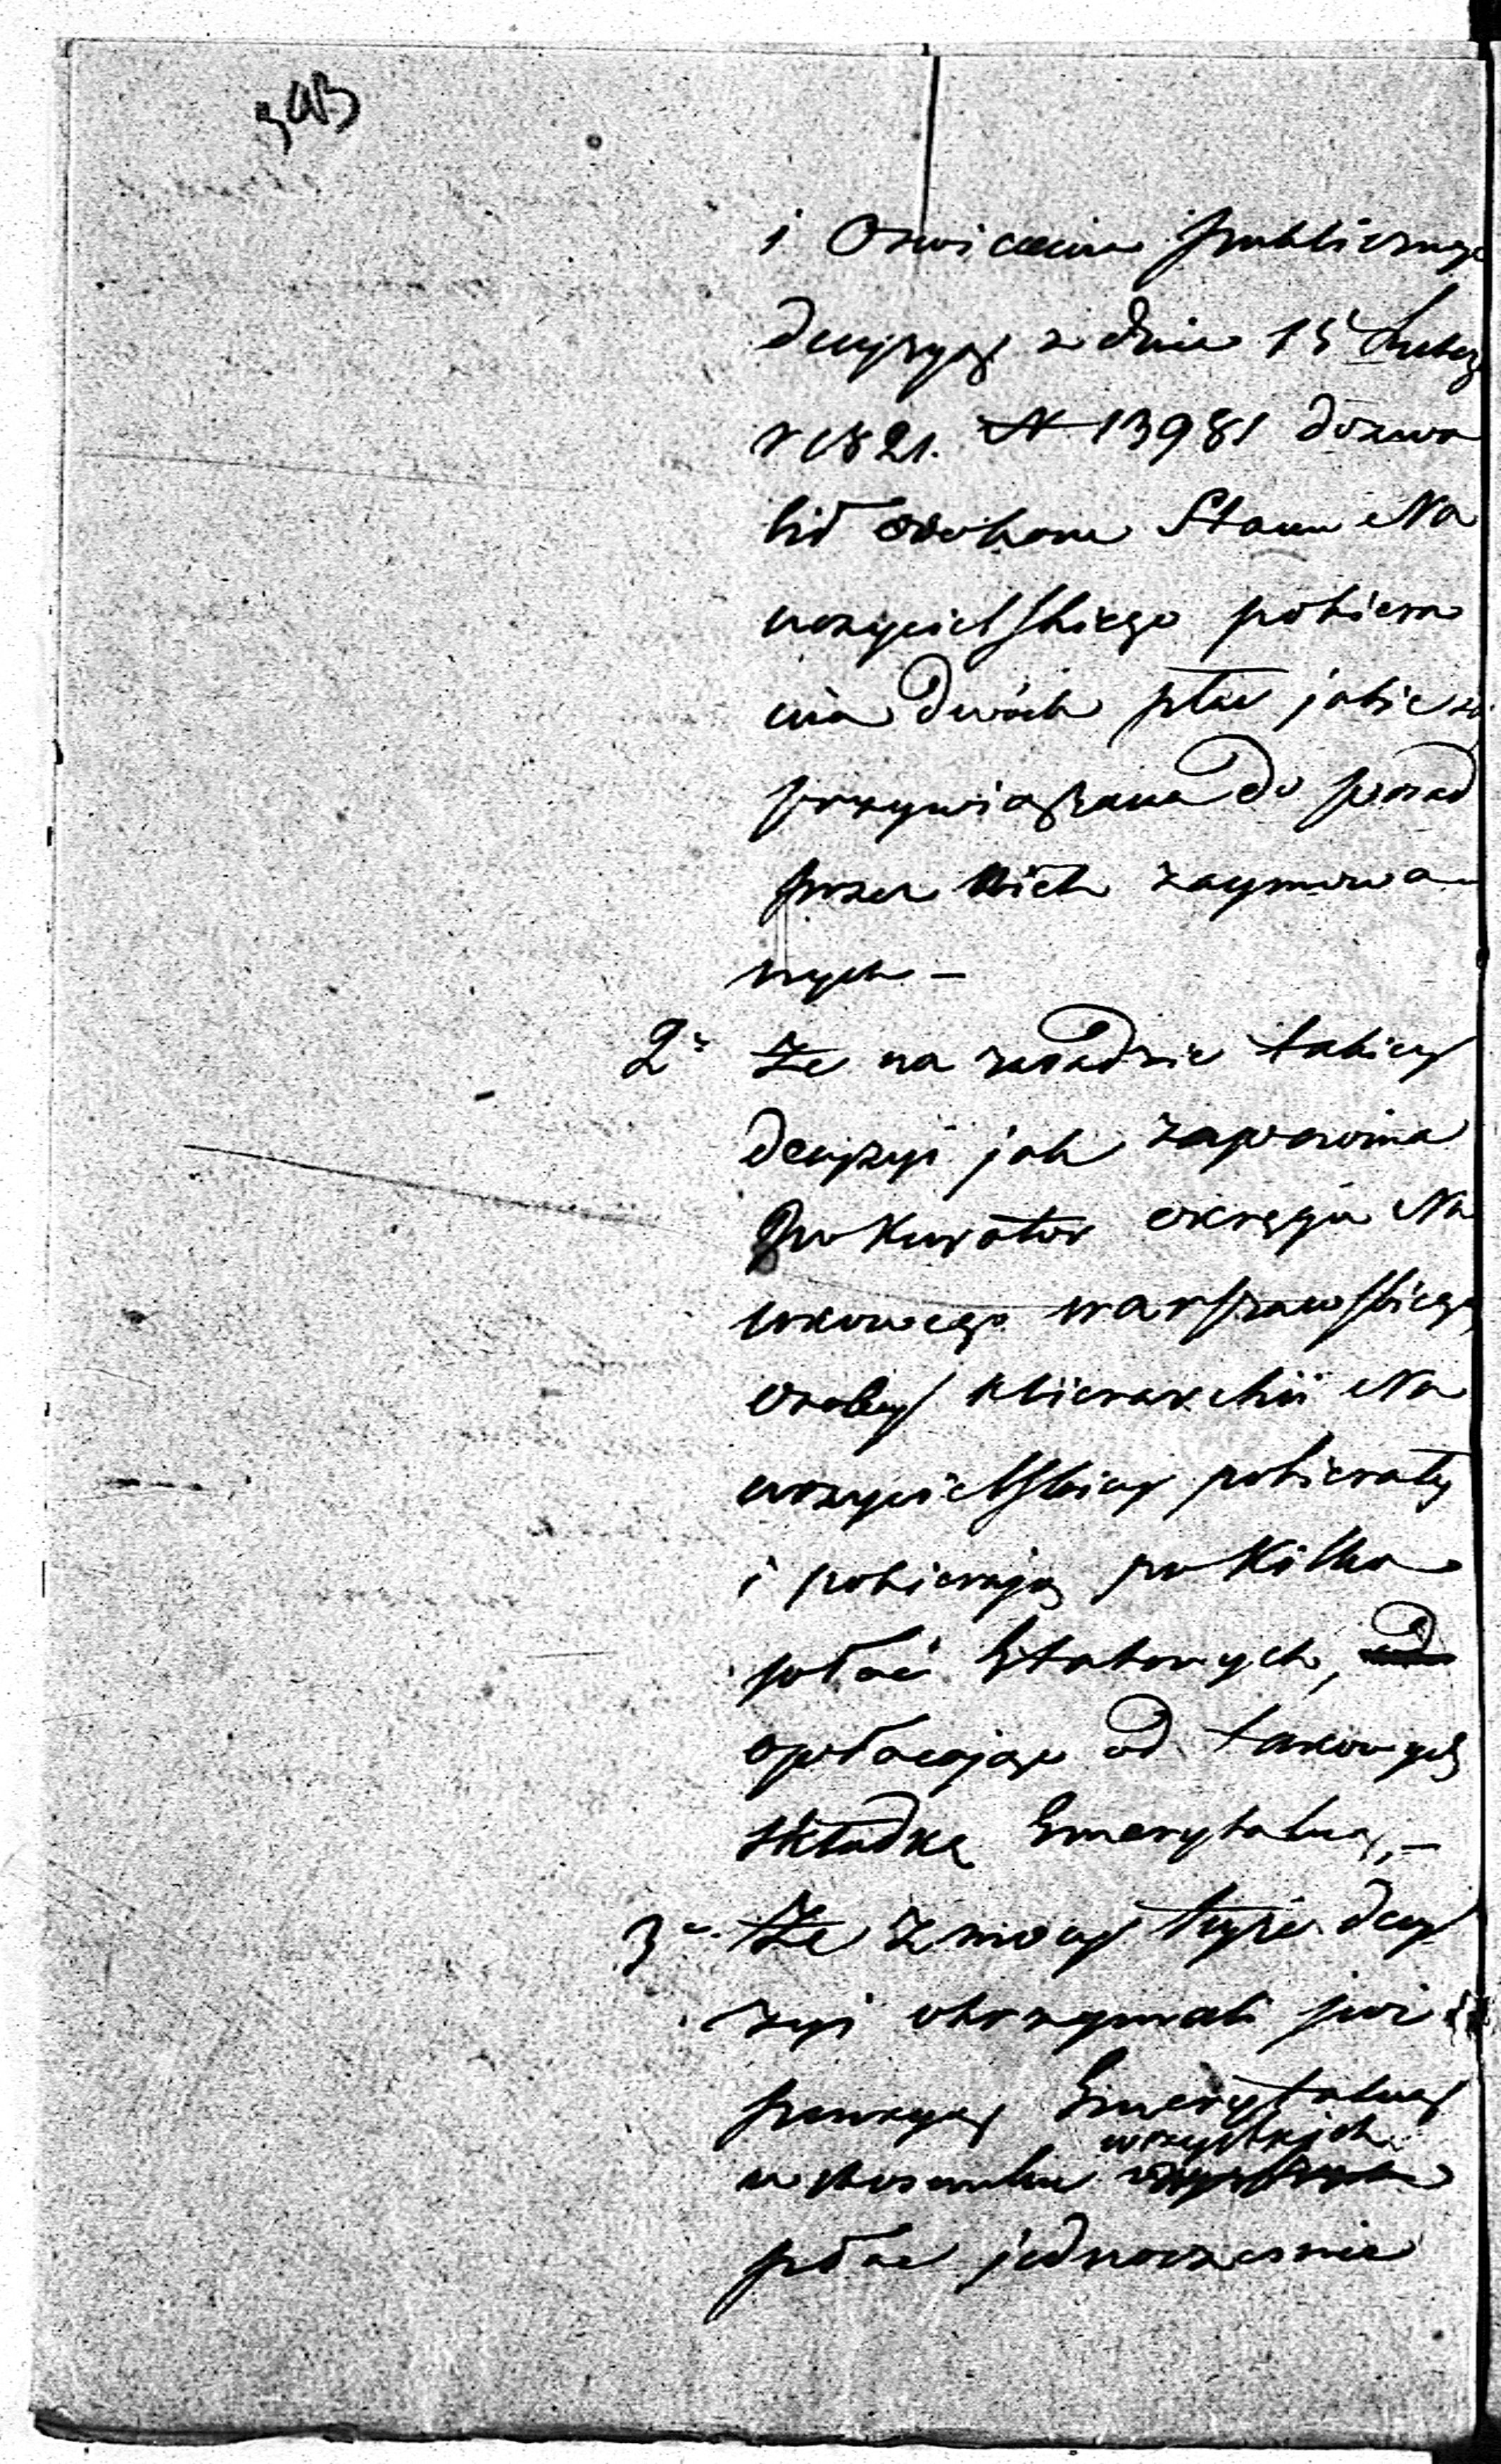 i Oswiecenia publicznego
decyzyą z dnia 15 Lutego
r 1821. N 13981 dozwo
lił osobom Stanu Na
uczycielskiego pobiera
nia dwóch płac jakie są
przywiązane do posad
przez nich zaymowa
nych –
2° Że na zasadzie takiey
decyzyi jak zapewnia
Kurator okręgu Na
ukowego warszawskiego
osoby Hierarchii Na
uczycielskiey pobierały
i pobierają po kilka
płac Etatowych,
opłacając od takowych
składkę Emerytalną, –
3° Że z mocy teyże decy
zyi otrzymali już
pensyą Emerytalną
w stosunku wszystkich
płac jednocześnie